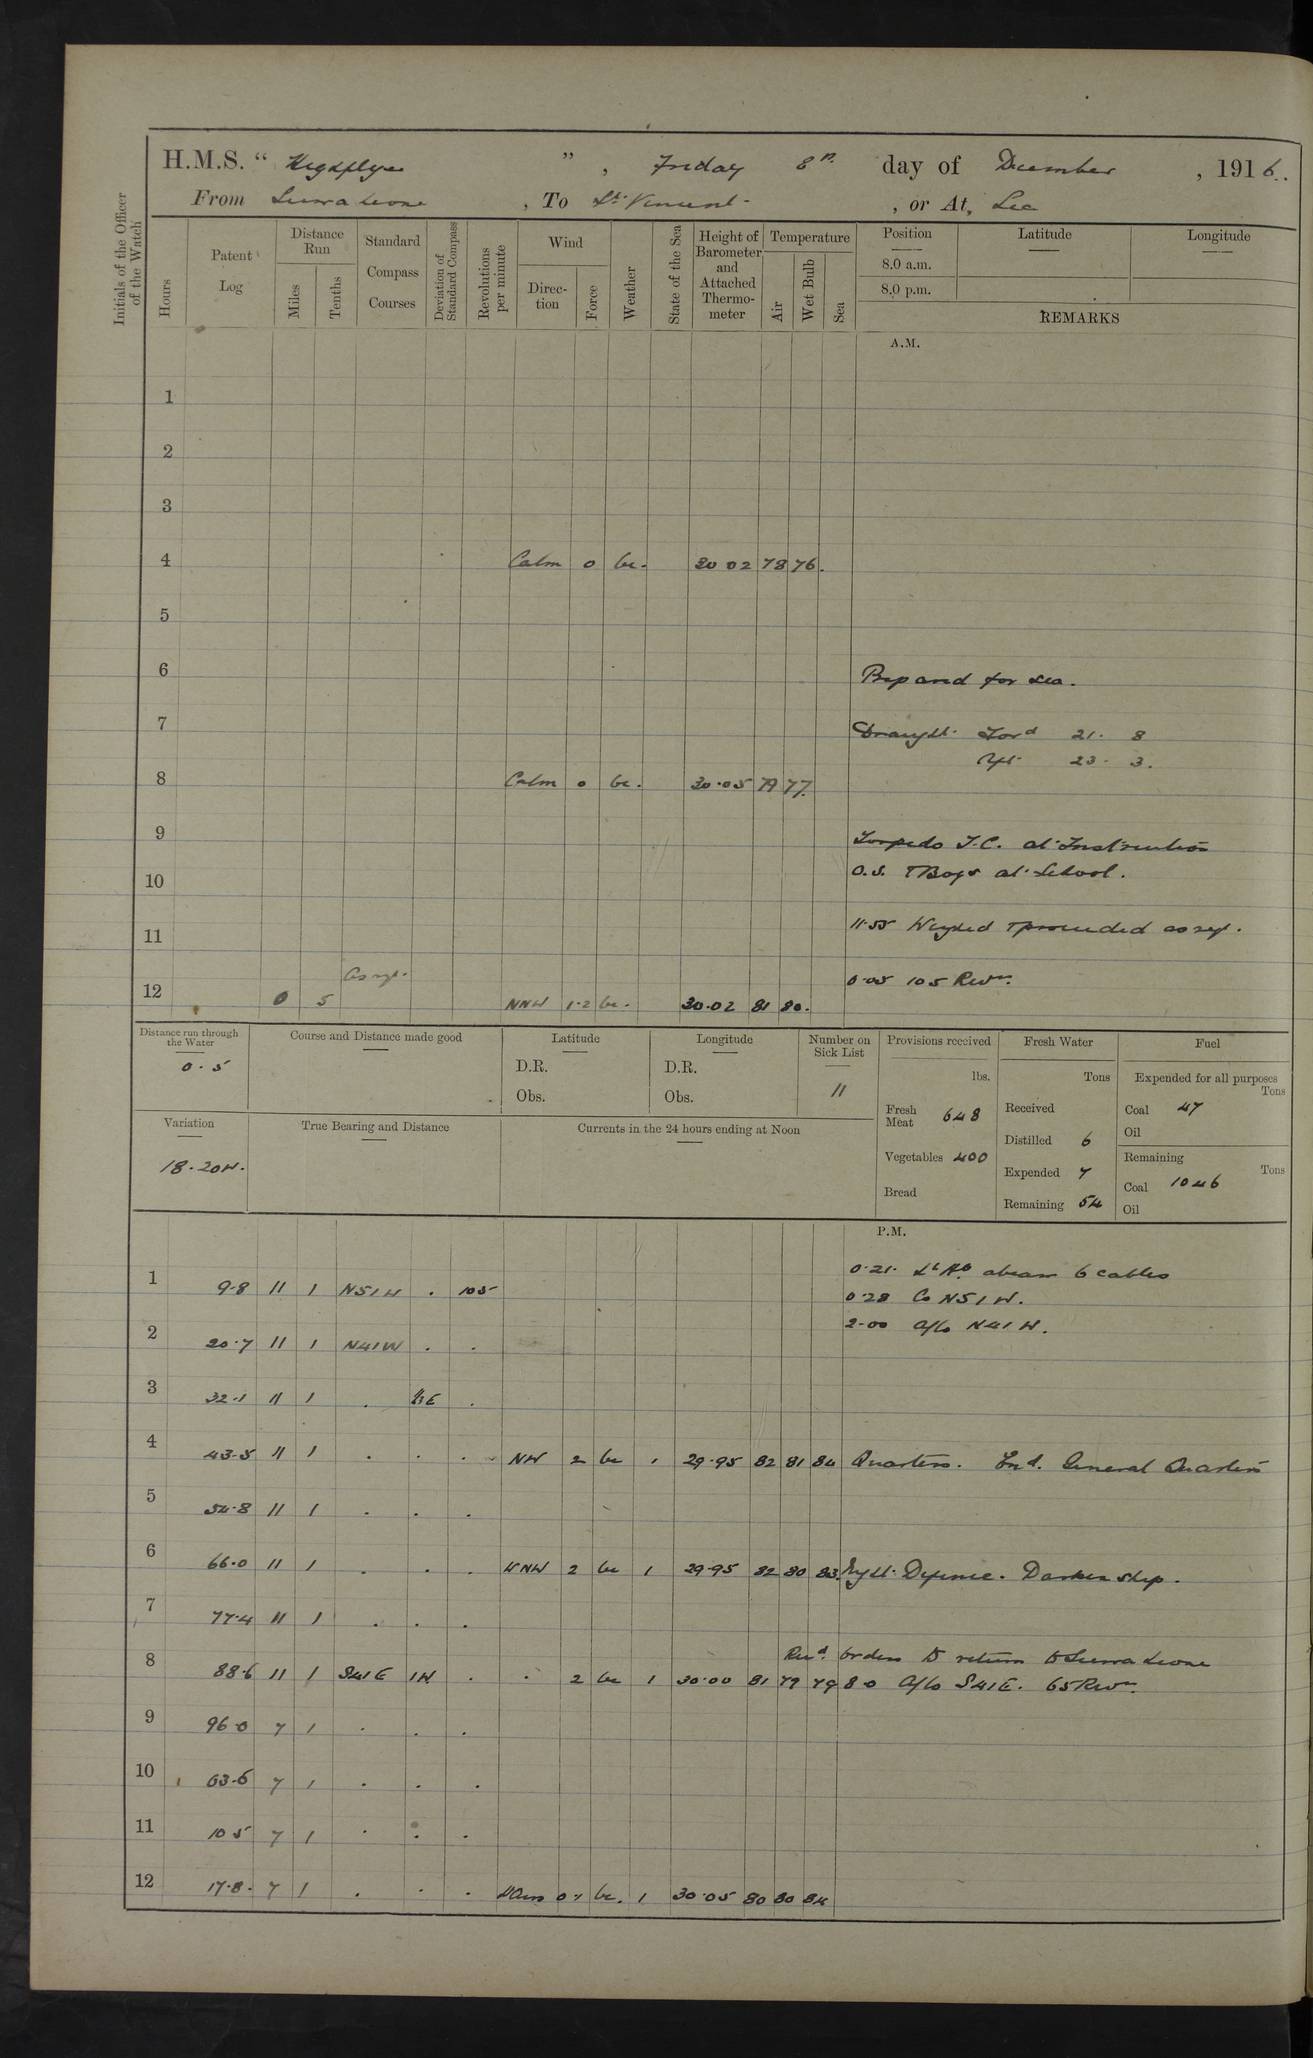 H.M.S. " Highflyer ", Friday 8th day of December, 1916.
From Sierra Leone, To St. Vincent, or At, Sea
Initials of the Officer of the Watch
Hours
Patent Log
Distance Run
Miles
Tenths
Standard Compass Courses
Deviation of Standard Compass
Revolutions per minute
Wind
Direction
Force
Weather
State of the Sea
Height of Barometer and Attached Thermometer
Temperature
Air
Wet Bulb
Sea
Position
8.0 a.m.
8.0 p.m.
Latitude
Longitude
REMARKS
A.M.
1
2
3
4 Calm 0 bc. 30 02 78 76.
5
6 Prepared for sea.
7 Draught Ford 21. 8
Aft 23. 3.
8 Calm 0 bc. 30.05 79 77.
9 Torpedo T.C. at Instruction
10 O.S. & Boys at School.
11 11.55 Weighed & proceeded as req.
12 0 5 As req. NNW 1.2 bc. 30.02 81 80. 0.05 105 Revns.
Distance run through the Water
0.5
Course and Distance made good
Latitude
D.R.
Obs.
Longitude
D.R.
Obs.
Number on Sick List
11
Provisions received
lbs.
Fresh Meat 648
Vegetables 400
Bread
Fresh Water
Tons
Received
Distilled 6
Expended 7
Remaining 54
Fuel
Expended for all purposes
Tons
Coal 47
Oil
Remaining
Tons
Coal 1046
Oil
Variation
18.20W.
True Bearing and Distance
Currents in the 24 hours ending at Noon
P.M.
0.21. Lt Ho. abeam 6 cables
1 9.8 11 1 N51W . 105 0.28 Co N51W.
2.00 A/Co N41W.
2 20.7 11 1 N41W . .
3 32.1 11 1 . E .
4 43.5 11 1 . . . NW 2 bc 1 29.95 82 81 84 Quarters. General Quarters
5 54.8 11 1 . . .
6 66.0 11 1 . . . WNW 2 bc 1 29.95 82 80 83. Night Defence. Darken ship.
7 77.4 11 1 . . .
Recd. orders to return to Sierra Leone
8 88.6 11 1 S41E 1W . . 2 bc 1 30.00 81 79 79 8.0 A/Co S41E. 65 Revns.
9 96.0 7 1 . . .
10 03.6 7 1 . . .
11 10 5 7 1 . . .
12 17.8. 7 1 . . . bc. 1 30.05 80 80 84